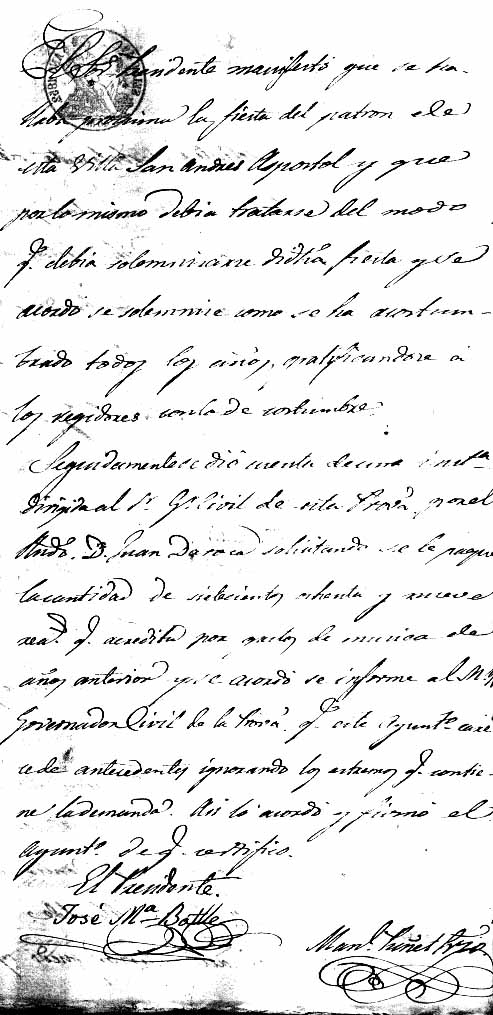 El Sr. Presidente manifestó que se ha-
llaba procsima la fiesta del patron de
esta Villa San Andres Apostol y que
por lo mismo debia tratarse del modo
q.e debia solemnisarse dicha fiesta y se
acordo se solemnise como se ha acostum-
brado todos los años, gratificandose a
los regidores con lo de costumbre.
Seguidamente se dió cuenta de una inst.a
dirigida al Sr. G.r Civil de esta Prov.a por el
D. Juan Daroca solicitando se le pague
la cantidad de sietecientos ochenta y nueve
rea.s q.e acredita por gastos de musica de
años anterior y se acordó se informe al M.
Governador Civil de la Prov.a q.e este Ayunt.o care
ce de antecedentes ignorando los estremos q.e contie-
ne la demanda. Asi lo acordó y firmó el
Ayunt.o de q.e certifico.
El Presidente.
José M.a Batlle
Man.l